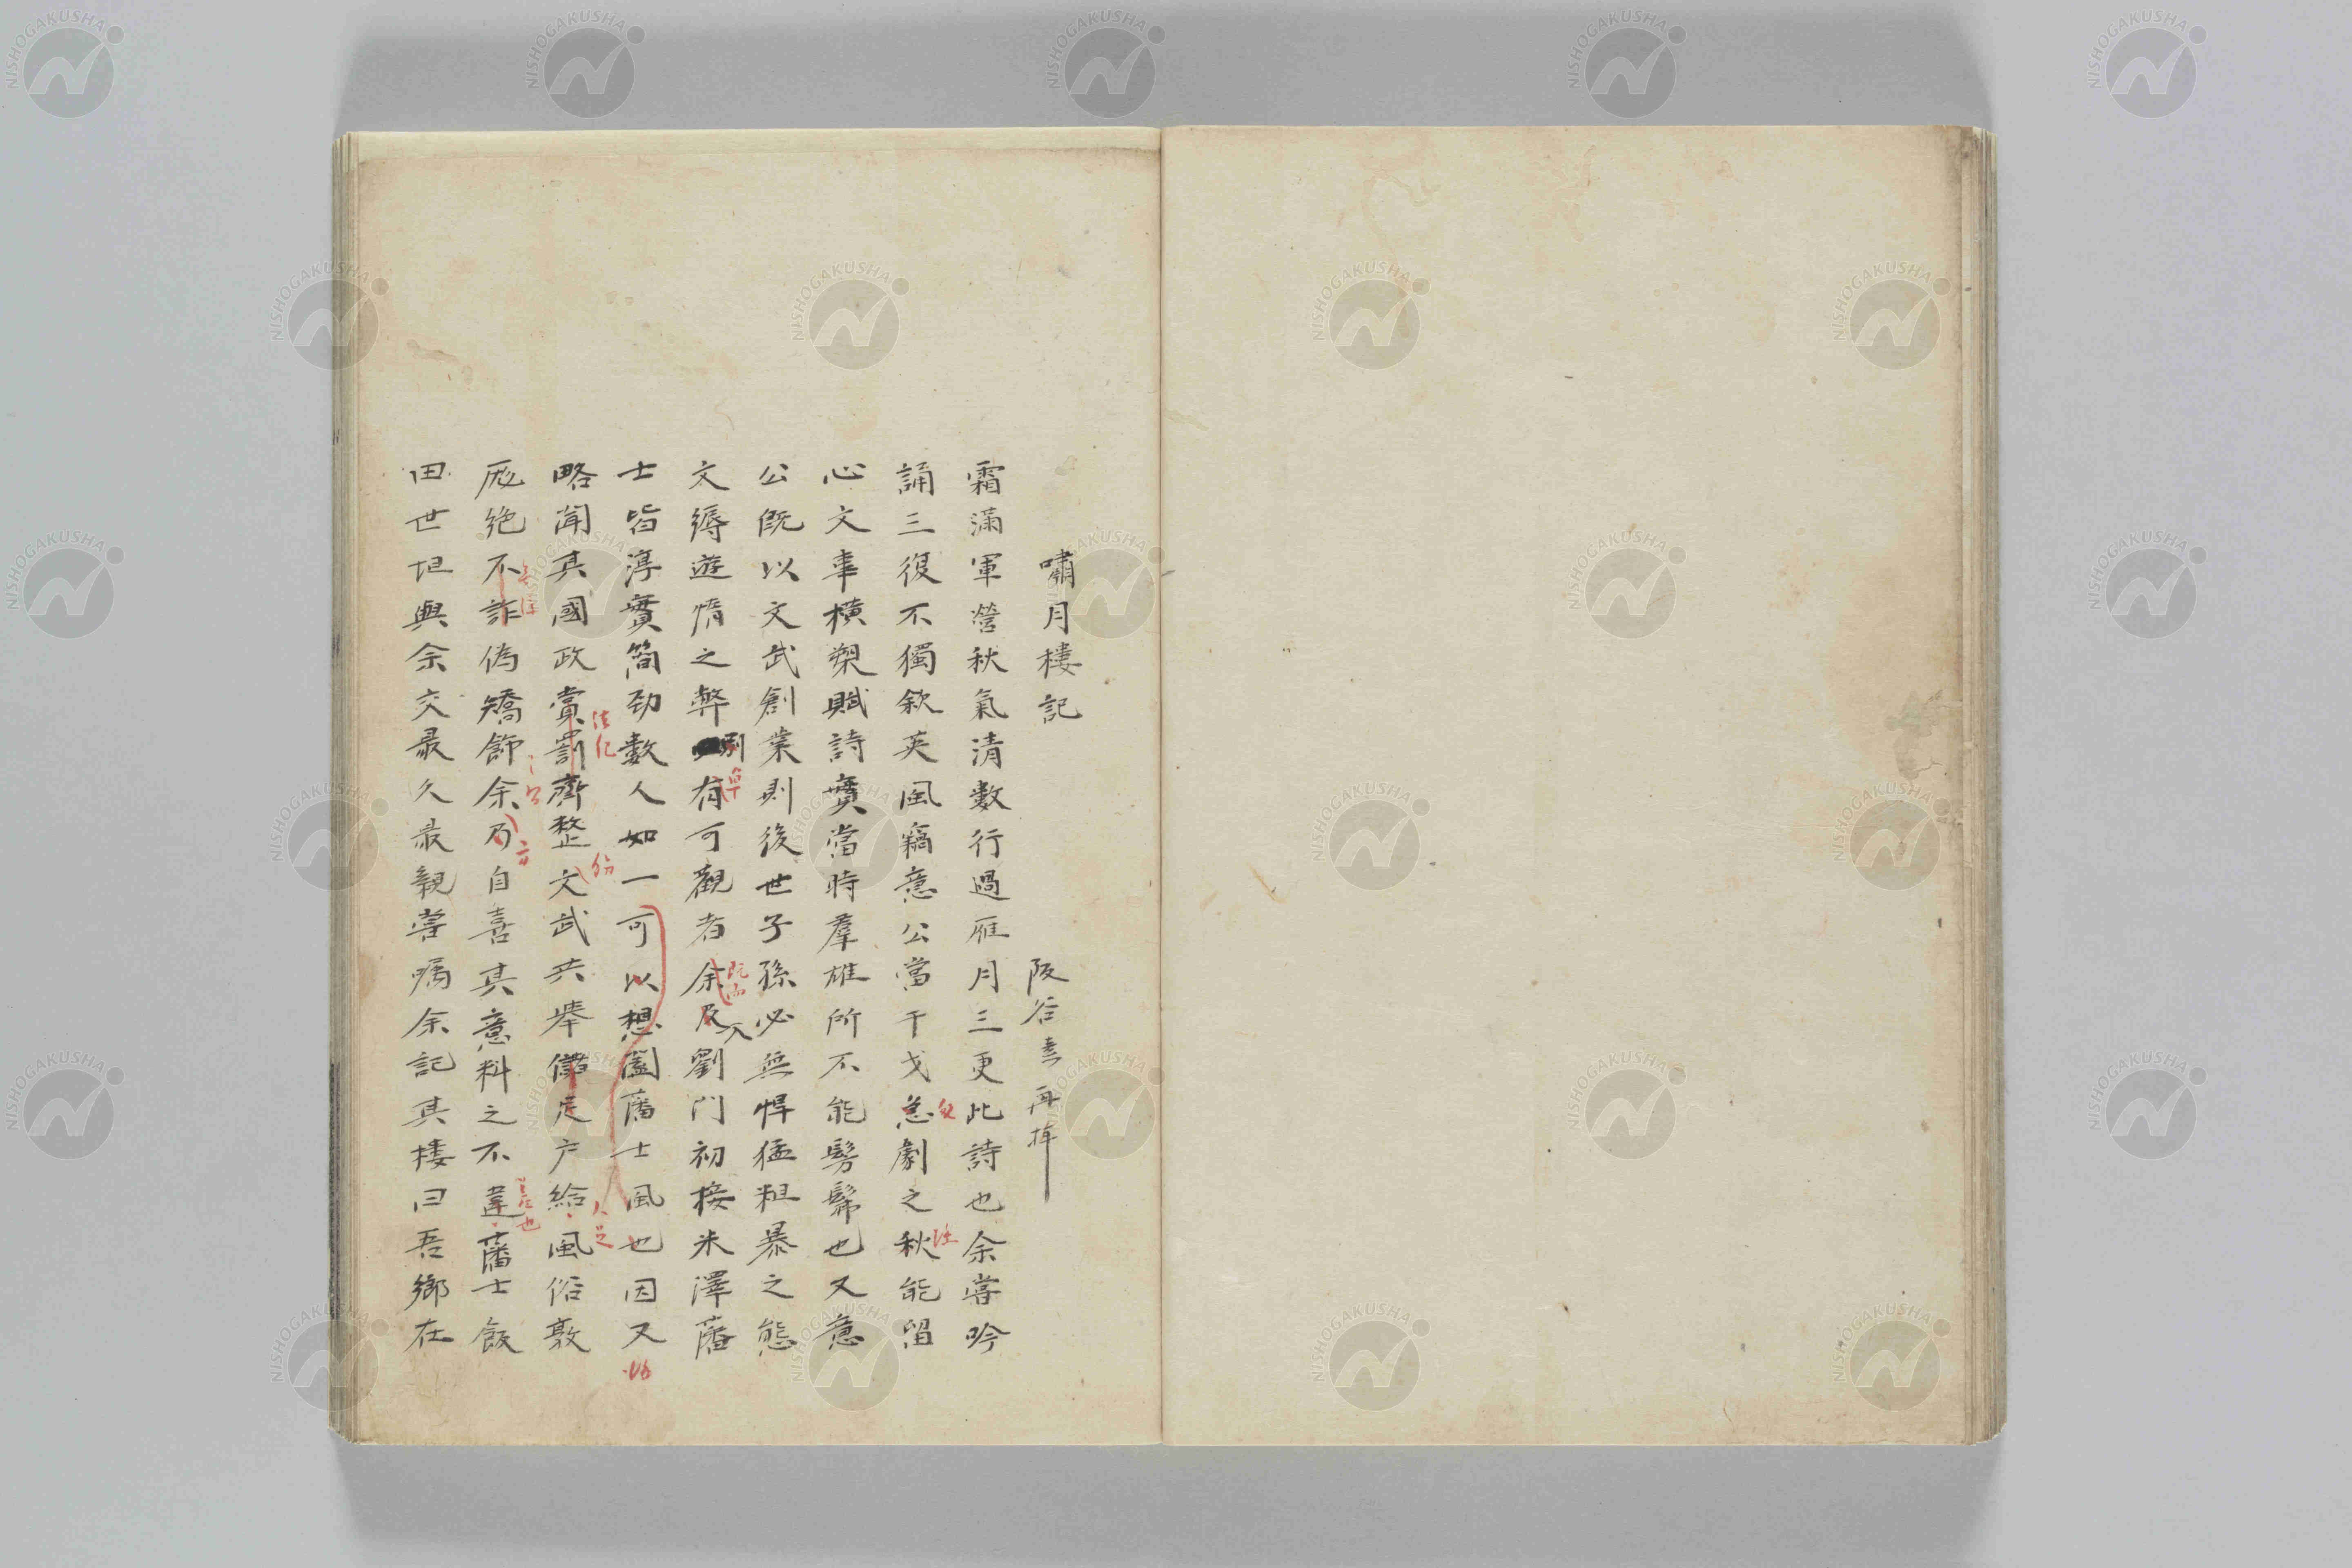 嘯月樓記
阪谷素再拝
霜滿軍營秋氣清數行過雁月三更此詩也余嘗吟
誦三復不獨欽英風竊意公當干戈怱劇之秋能留
心文事橫槊賦詩實當時羣雄所不能髣髴也又意
公既以文武創業則後世子孫必無悍猛粗暴之態
文縟遊惰之弊別有可觀者余及入劉門初接米澤藩
士皆淳實簡勁數人如一可以想闔藩士風也因又
略聞其國政賞罰齊整文武共舉儲足戶給風俗敦
厖絶不詐偽矯飾余乃自喜其意料之不違藩士飯
田世坦與余交最久最親嘗嘱余記其樓曰吾鄉在
NISHOGAKUSHA